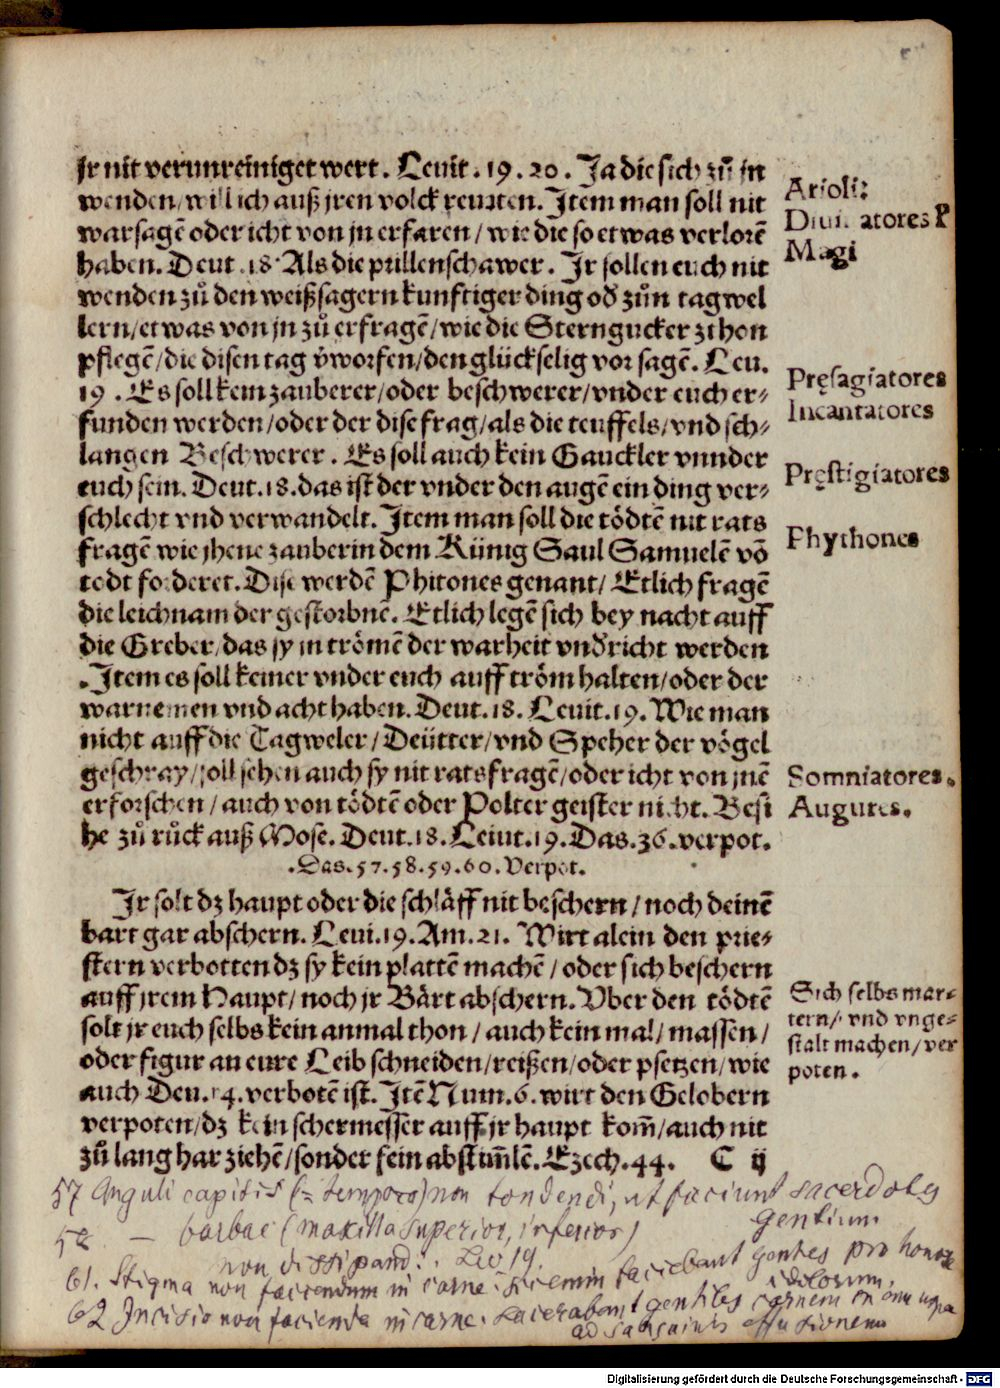 jr nit verunreiniget wert. Levit. 19. 20. Ja die sich zů jn
wenden/ will ich auß jren volck reuten. Item man soll nit
warsagē oder icht von jn erfaren/ wie die so etwas verlorē
haben. Deut. 18 Als die prillenschawer. Jr sollen euch nit
wenden zů den weißsagern kunftiger ding oď zůn tagwel
lern/ etwas von jn zů erfragē/ wie die Sterngucker zthon
pflegē/ die disen tag v̓worfen/ den glückselig vor sagē. Leu.
19. Es soll kein zauberer/ oder beschwerer/ vnder euch er⸗
funden werden/ oder der dise frag/ als die teuffels/ vnd sch⸗
langen Beschwerer. Es soll auch kein Gauckler vnnder
euch sein. Deut. 18. das ist der vnder den augē ein ding ver⸗
schlecht vnd verwandelt. Item man soll die tödtē nit rats
fragē wie jhene zauberin dem Künig Saul Samuelē vō
todt forderet. Dise werdē Phitones genant/ Etlich fragē
die leichnam der gestorbnē. Etlich legē sich bey nacht auff
die Greber/ das sy in trömē der warheit vnďricht werden
. Item es soll keiner vnder euch auff tröm halten/ oder der
warnemen vnd acht haben. Deut. 18. Levit. 19. Wie man
nicht auff die Tagweler/ Deütter/ vnd Speher der vögel
geschray/ soll sehen auch sy nit rats fragē/ oder icht von jnē
erforschen/ auch von tödtē oder Polter geister nicht. Besi
he zů růck auß Mose. Deut. 18. Leiut. 19. Das. 36. verpot.
. Das. 57. 58. 59. 60. Verpot.
Jr solt dz haupt oder die schläff nit beschern/ noch deinē
bart gar abschern. Levi. 19. Am. 21. Wirt alein den prie⸗
stern verbotten dz sy kein plattē machē/ oder sich beschern
auff jrem Haupt/ noch jr Bärt abschern. Vber den tödtē
solt jr euch selbs kein anmal thon/ auch kein mal/ massen/
oder figur an eure Leib schneiden/ reißen/ oder pfetzen/ wie
auch Deu. 14. verbotē ist. Itē Num. 6. wirt den Gelobern
verpoten/ dz kein schermesser auff jr haupt kom̄/ auch nit
zů lang har ziehē/ sonder fein abstim̄lē. Ezech. 44. C ij
Arioli:
Divinatores P
Magi
Pręsagiatores
Incantatores
Pręstigiatores
Phythones
Somniatores.
Augures.
Sich selbs mar⸗
tern/ vnd vnge⸗
stalt machen/ ver
poten.
57 Anguli capitis (= tempora) non tondendi, ut faciunt sacerdotes
gentium
58 — barbae (maxilla superior, inferior)
non dissipandi. Lev 19.
61. Stigma non faciendum in carne: sic enim faciebant gentes pro honore
idolorum.
62 Incisio non facienda in carne. lacerabant gentiles carnem
ad sanguinis effusionem
Digitalisierung gefördert durch die Deutsche Forschungsgemeinschaft - DFG